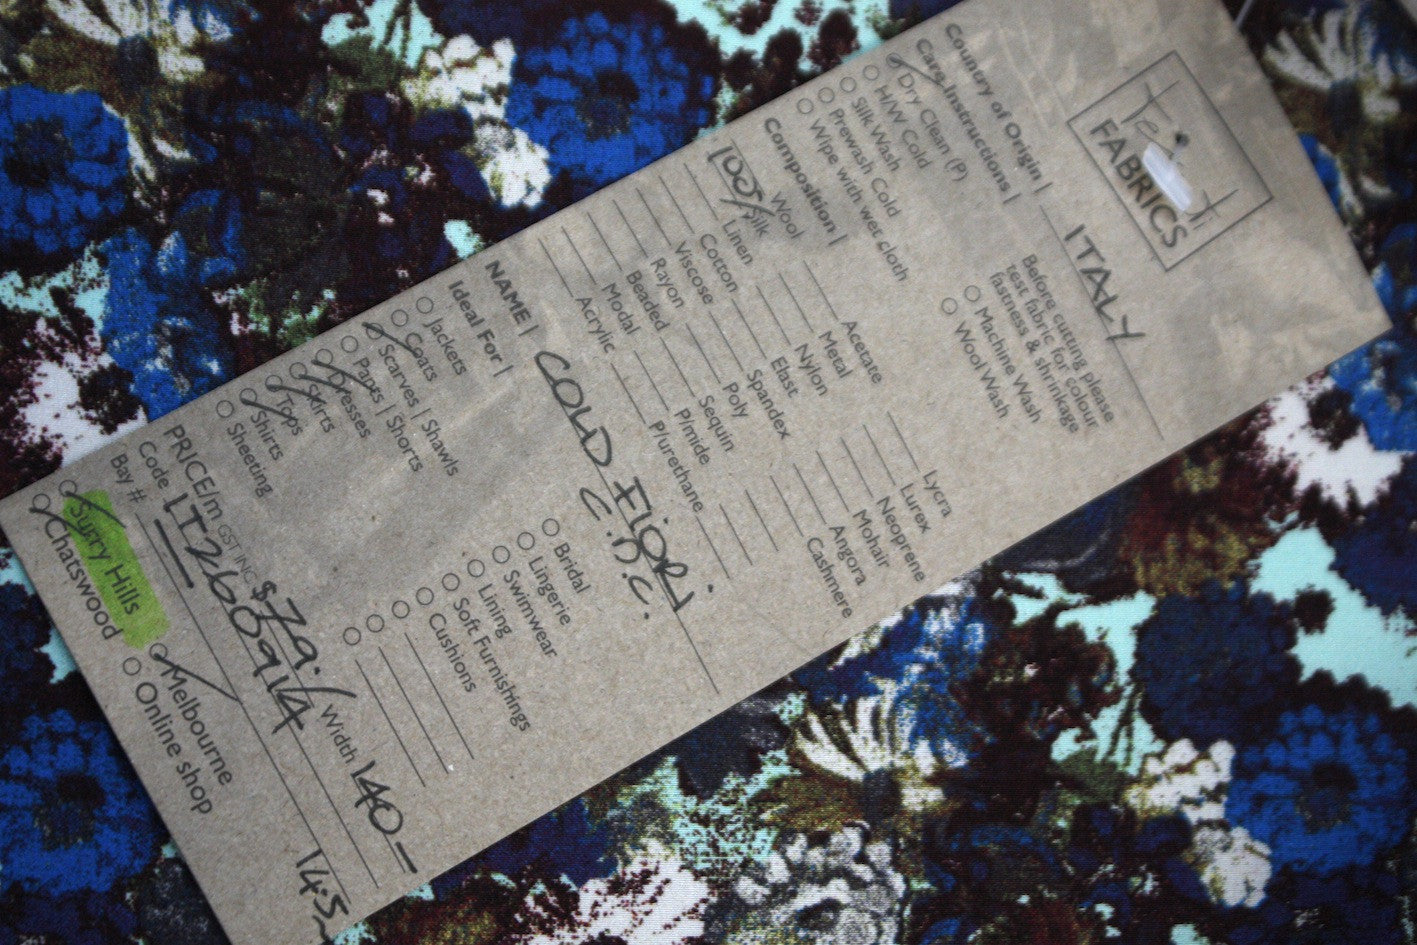 FABRICS
Country of Origin | ITALY
Care Instructions |
Dry Clean (P)
H/W Cold
Silk Wash
Prewash Cold
Wipe with wet cloth
Before cutting please
test fabric for colour
fastness & shrinkage
Machine Wash
Wool Wash
Composition |
Wool
100% Silk
Linen
Cotton
Viscose
Rayon
Beaded
Modal
Acrylic
Acetate
Metal
Nylon
Elast
Spandex
Poly
Sequin
P/mide
P/urethane
Lycra
Lurex
Neoprene
Mohair
Angora
Cashmere
NAME | COLD FIORI
C.D.C.
Ideal For |
Jackets
Coats
Scarves | Shawls
Pants | Shorts
Dresses
Skirts
Tops
Shirts
Sheeting
Bridal
Lingerie
Swimwear
Lining
Soft Furnishings
Cushions
PRICE/m GST INC $79.- Width 140-
Code IT260914
Bay # 14.5
Surry Hills
Chatswood
Melbourne
Online shop